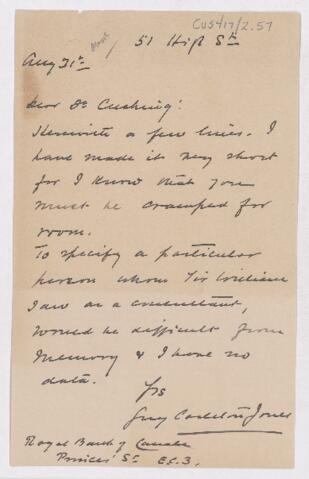 CUS417/2.57
51 High St
Aug 31st
Dear Dr Cushing:
Herewith a few lines. I
have made it very short
for I know that you
must be cramped for
room.
To specify a particular
person whom Sir William
saw as a consultant,
would be difficult from
memory & I have no
data.
Yrs
Guy Carleton Jones
Royal Bank of Canada
Princes St E.C.3.